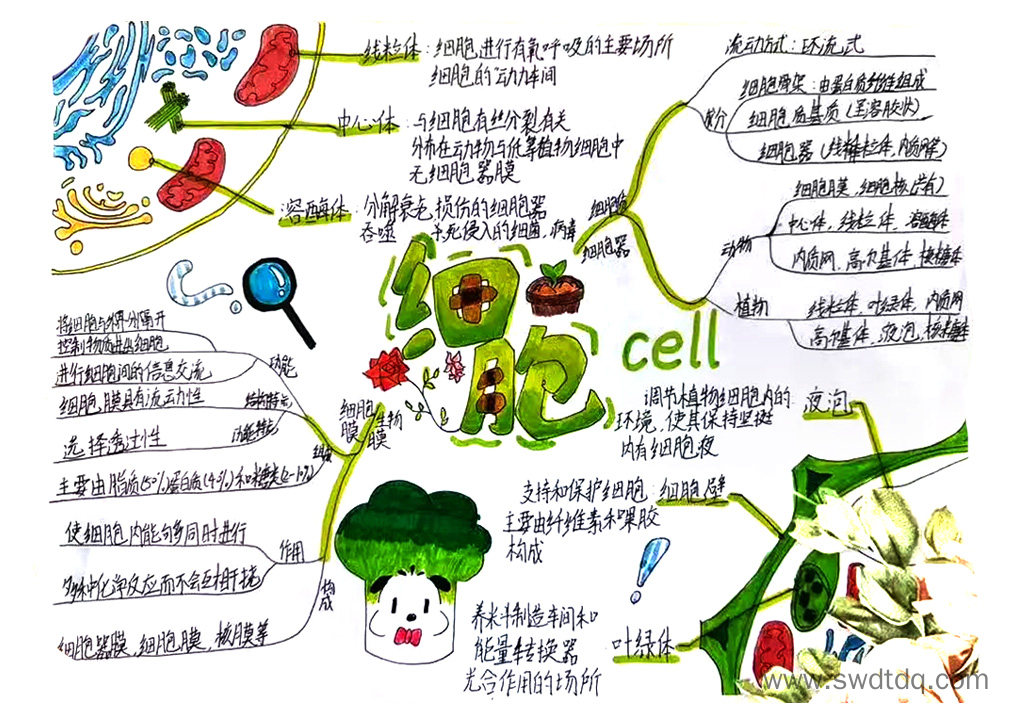 线粒体：细胞进行有氧呼吸的主要场所
细胞的"动力车间
中心体：与细胞有丝分裂有关
分布在动物与低等植物细胞中
无细胞器膜
溶酶体：分解衰老、损伤的细胞器
吞噬 杀死侵入的细菌、病毒
细胞
cell
细胞质
细胞器
流动方式：环流式
成分
细胞骨架：由蛋白质纤维组成
细胞质基质（呈溶胶状）
动物
细胞膜、细胞核
中心体、线粒体、溶酶体
内质网、高尔基体、核糖体
植物
线粒体、叶绿体、内质网
高尔基体、液泡、核糖体
将细胞与外界分隔开
控制物质进出细胞
进行细胞间的信息交流
功能
细胞膜具有流动性
结构特点
选择透过性
功能特点
主要由脂质(50%)蛋白质(40%)和糖类(2-10%)
组成
细胞膜
生物膜
使细胞内能够多同时进行
多种化学反应而不会互相干扰
作用
细胞器膜、细胞膜、核膜等
构成
调节植物细胞内的
环境，使其保持坚挺
内有细胞液
液泡
支持和保护细胞：细胞壁
主要由纤维素和果胶
构成
养料制造车间和
能量转换器
光合作用的场所
叶绿体
www.swdtdq.com